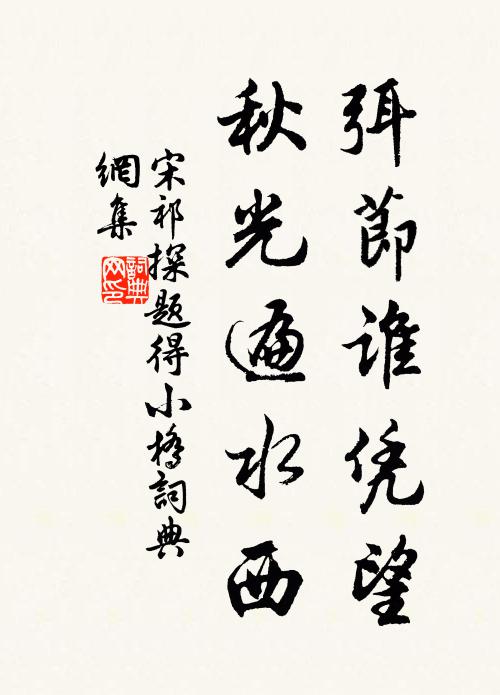 弭節谁凭望
秋光遍水西
宋祁探题得小橋詞典
網集
詞典
网印